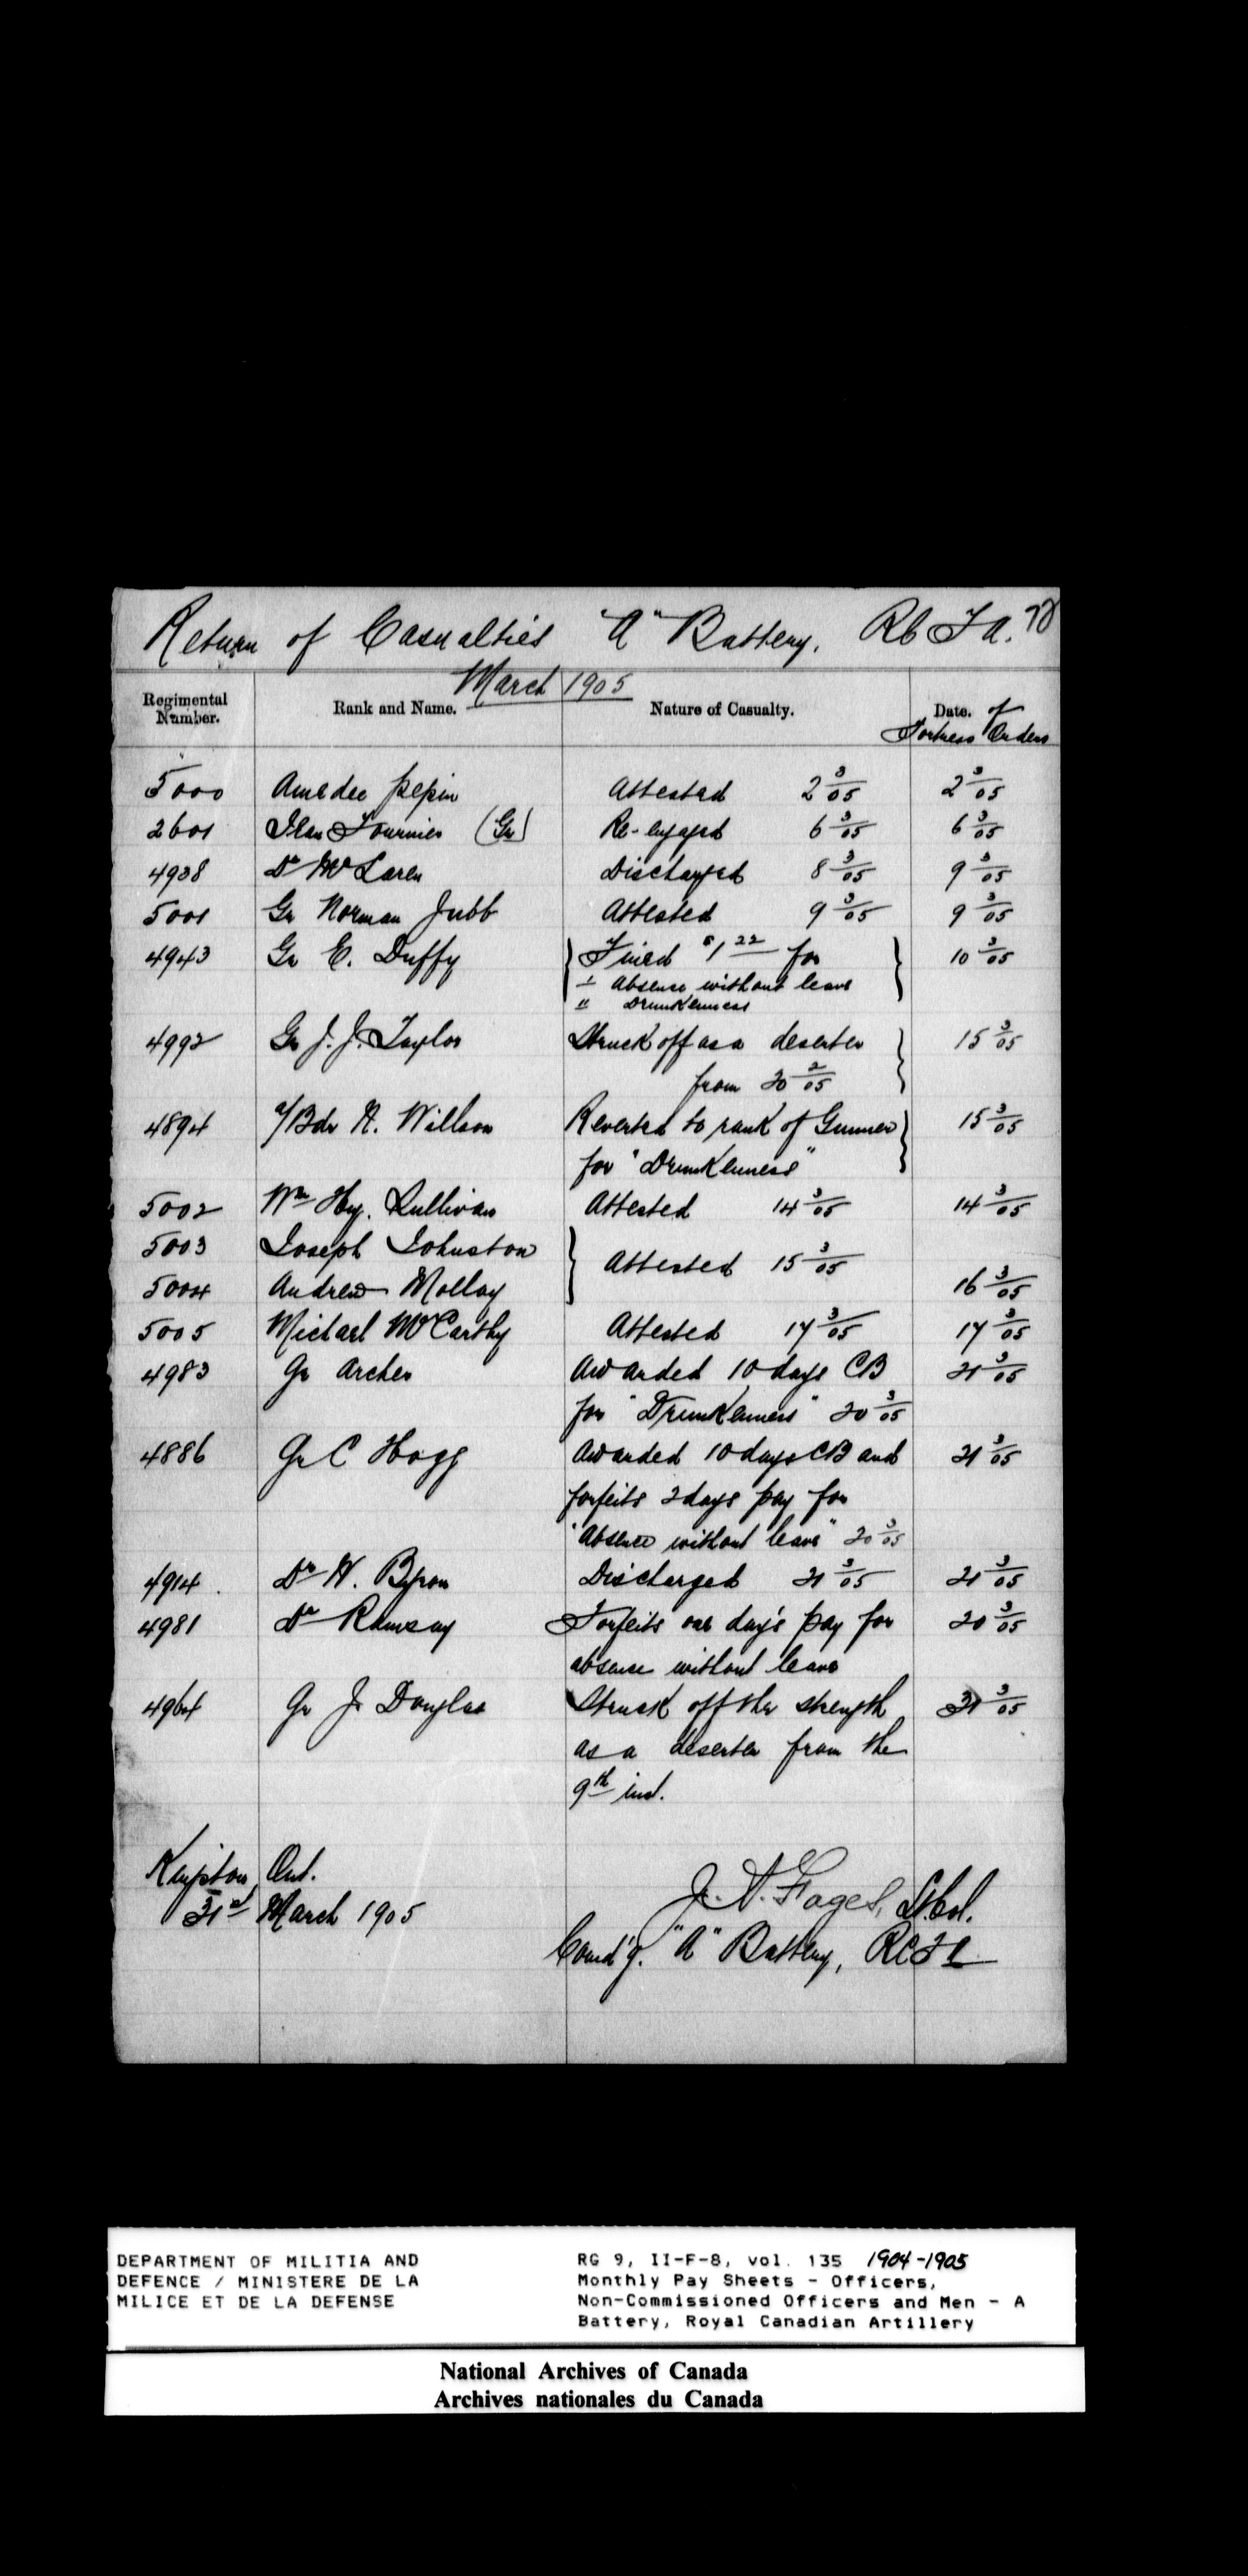 Return of Casualties "A" Battery, RCFA. 78
March 1905
Regimental Number. Rank and Name. Nature of Casualty. Date. of Fortress Orders
5000 Amedee Pepin Attested 2 3/05 2 3/05
2601 Fournier (Gr) Re-engaged 6 3/05 6 3/05
4938 Dr McLaren Discharged 8 3/05 9 3/05
5001 Gr Norman Jubb Attested 9 3/05 9 3/05
4943 Gr E. Duffy Fined $1 22 for 10 3/05
I Absence without leave
II Drunkenness
4992 Gr J. J. Taylor Struck off as a deserter 15 3/05
from 20 2/05
4894 a/Bdr N. Willson Reverted to rank of Gunner 15 3/05
for "Drunkenness"
5002 Wm Hy. Sullivan Attested 14 3/05 14 3/05
5003 Joseph Johnston
Attested 15 3/05
5004 Andrew Molloy 16 3/05
5005 Michael McCarthy Attested 17 3/05 17 3/05
4983 Gr Archer Awarded 10 days CB 21 3/05
for "Drunkenness" 20 3/05
4886 Gr C Hogg Awarded 10 days CB and 21 3/05
forfeits 2 days pay for
"Absence without leave" 20 3/05
4914 Dr H. Byron Discharged 21 3/05 21 3/05
4981 Dr Ramsay Forfeits one day's pay for 20 3/05
absence without leave
4964 Gr J. Douglas Struck off the strength 31 3/05
as a deserter from the
9th inst.
Kingston, Ont.
31st March 1905
Fages, Lt. Col.
Comd'g. "A" Battery, RCFA
DEPARTMENT OF MILITIA AND
DEFENCE / MINISTERE DE LA
MILICE ET DE LA DEFENSE
RG 9, II-F-8, vol. 135 1904-1905
Monthly Pay Sheets - Officers,
Non-Commissioned Officers and Men - A
Battery, Royal Canadian Artillery
National Archives of Canada
Archives nationales du Canada